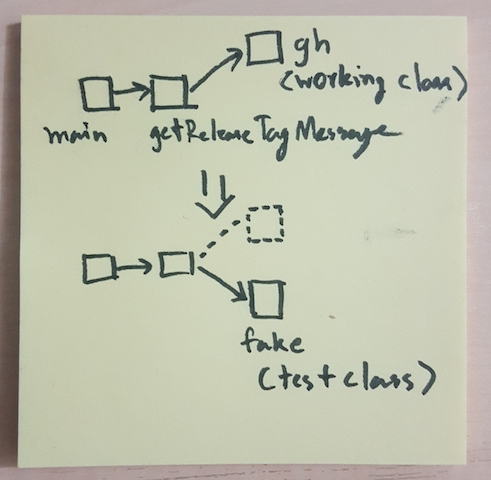 gh
(working class)
main getReleaseTagMessage
fake
(test class)